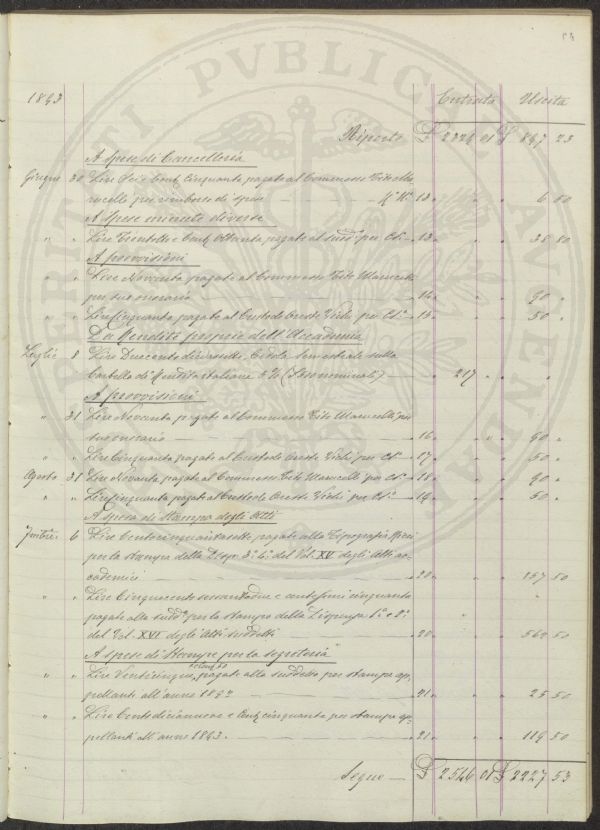 1893 Entrata Uscita
Riporto £ 2324 01 £ 847 23
A Spese di Cancelleria
Giugno 30 Lire Sei e Cent. Cinquanta pagate al Commesso Tito
per rimborso di spese N.° 13 " " " 6 50
A Spese minute diverse
" " Lire Trentotto e Cent. Ottanta pagate al sudd.° per C.s. 13 " " " 38 80
A provvisioni
" " Lire Novanta pagate al Commesso Tito Marucelli
per suo onorario 14 " " " 90 "
" " Lire Cinquanta pagate al Custode Oreste per C.s. 15 " " " 50 "
Da Rendite proprie dell'Accademia
Luglio 8 Lire Duecento diciassette, Cedola Semestrale sulla
Cartella di Rendita italiana 5% " 217 " " " "
A provvisioni
" 31 Lire Novanta pagate al Commesso Tito Marucelli per
suo onorario 16 " " " 90 "
" " Lire Cinquanta pagate al Custode Oreste per C.s. 17 " " " 50 "
Agosto 31 Lire Novanta pagate al Commesso Tito Marucelli per C.s. 18 " " " 90 "
" " Lire Cinquanta pagate al Custode Oreste per C.s. 19 " " " 50 "
A Spese di Stampa degli Atti
7mbre 6 Lire Centocinquantasette pagate alla Tipografia
per la stampa della Disp. 3.ª 4.ª del Vol. XV degli Atti ac-
cademici 20 " " " 157 50
" " Lire Cinquecento e centesimi cinquanta
pagate alla sudd.ª per la stampa della Dispensa 1.ª e 2.ª
del Vol. XVI degli Atti suddetti 20 " " " 50
A Spese di Stampe per la Segreteria
" " Lire Venticinque, e Cent. 50 pagate alla suddetta per stampe ap-
pellanti all'anno 21 " " " 25 50
" " Lire Centodiciannove e Cent. cinquanta per stampe ap-
pellanti all'anno 1893. 21 " " " 119 50
Segue £ 2546 01 £ 2227 53
PVBLICAE